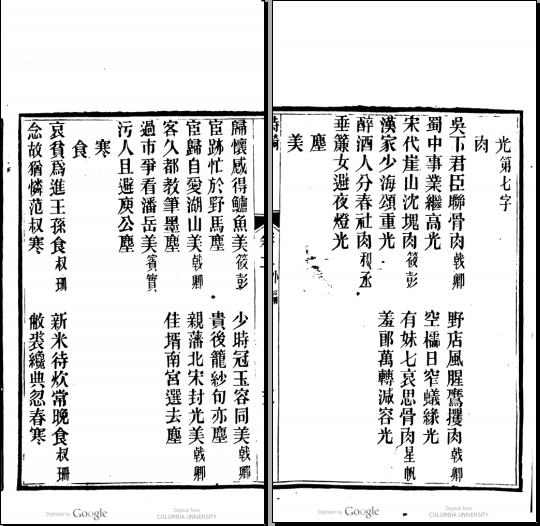 光第七字
肉
吳下君臣聯骨肉戟卿 野店風腥鷹攫肉戟卿
蜀中事業繼高光 空櫺日窄蟻緣光
宋代崖山沈塊肉筱彭 有妹七哀思骨肉星帆
漢家少海頌重光 羞郎萬轉減容光
醉酒人分春社肉穆丞
垂簾女避夜燈光
塵
美
歸懷感得鱸魚美筱彭 少時冠玉容同美戟卿
宦跡忙於野馬塵 貴後籠紗句亦塵
宦歸自愛湖山美戟卿 親藩北宋封光美戟卿
客久都教筆墨塵 佳壻南宮選去塵
過市爭看潘岳美賓寅
污人且避庾公塵
寒
食
哀貧爲進王孫食叔珊 新米待炊常晚食叔珊
念故猶憐范叔寒 敝裘纔典忽春寒
Digitized by Google
Original from
COLUMBIA UNIVERSITY
Digitized by Google
Original from
COLUMBIA UNIVERSITY